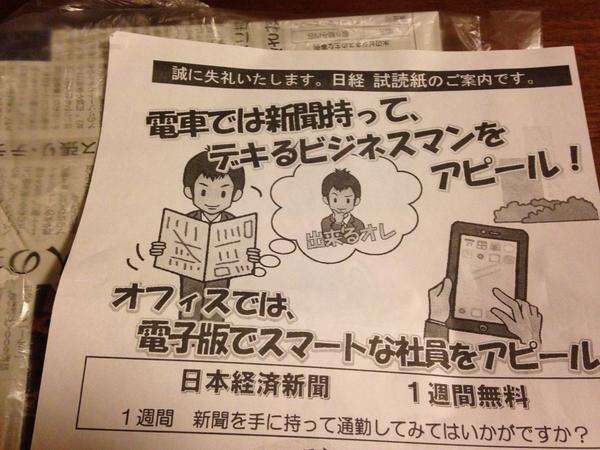 誠に失礼いたします。日経 試読紙のご案内です。
電車では新聞持って、
デキるビジネスマンを
アピール！
出来るオレ
オフィスでは、
電子版でスマートな社員をアピール
日本経済新聞 1週間無料
1週間 新聞を手に持って通勤してみてはいかがですか？